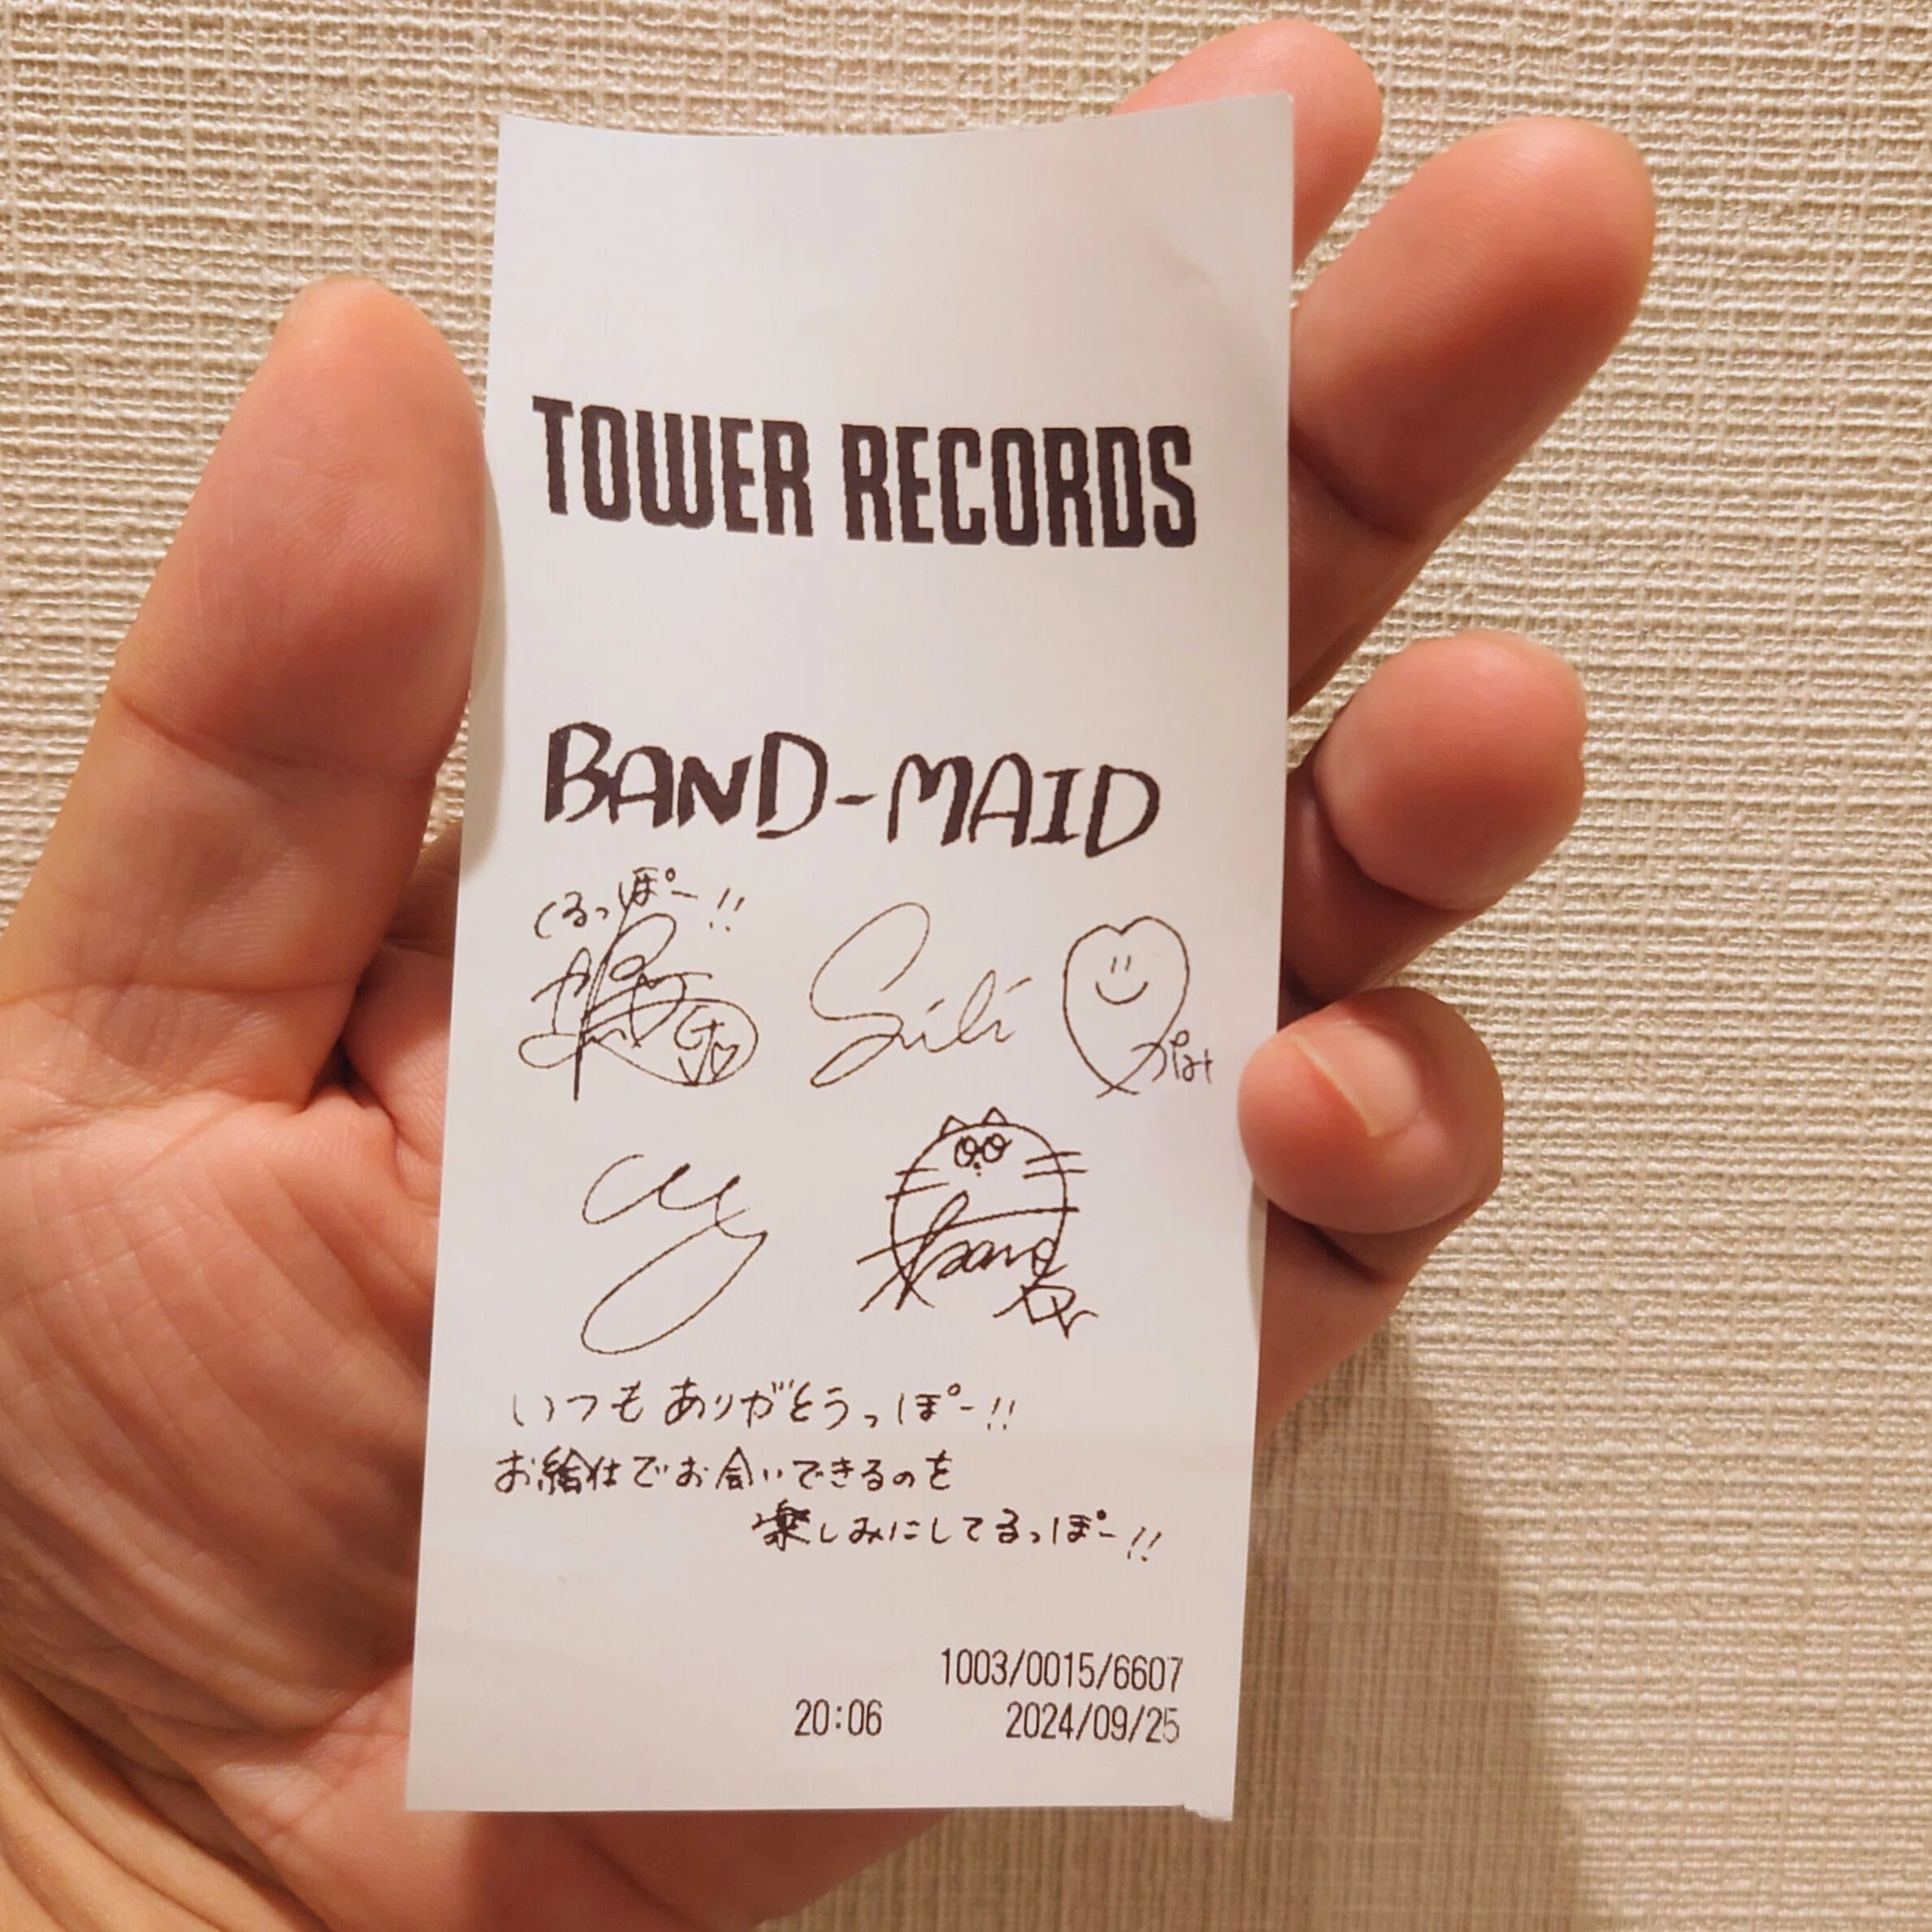 TOWER RECORDS
BAND-MAID
くるっぽー!!
かのん
いつもありがとうっぽー!!
お給仕でお会いできるのを
楽しみにしてるっぽー!!
1003/0015/6607
20:06 2024/09/25